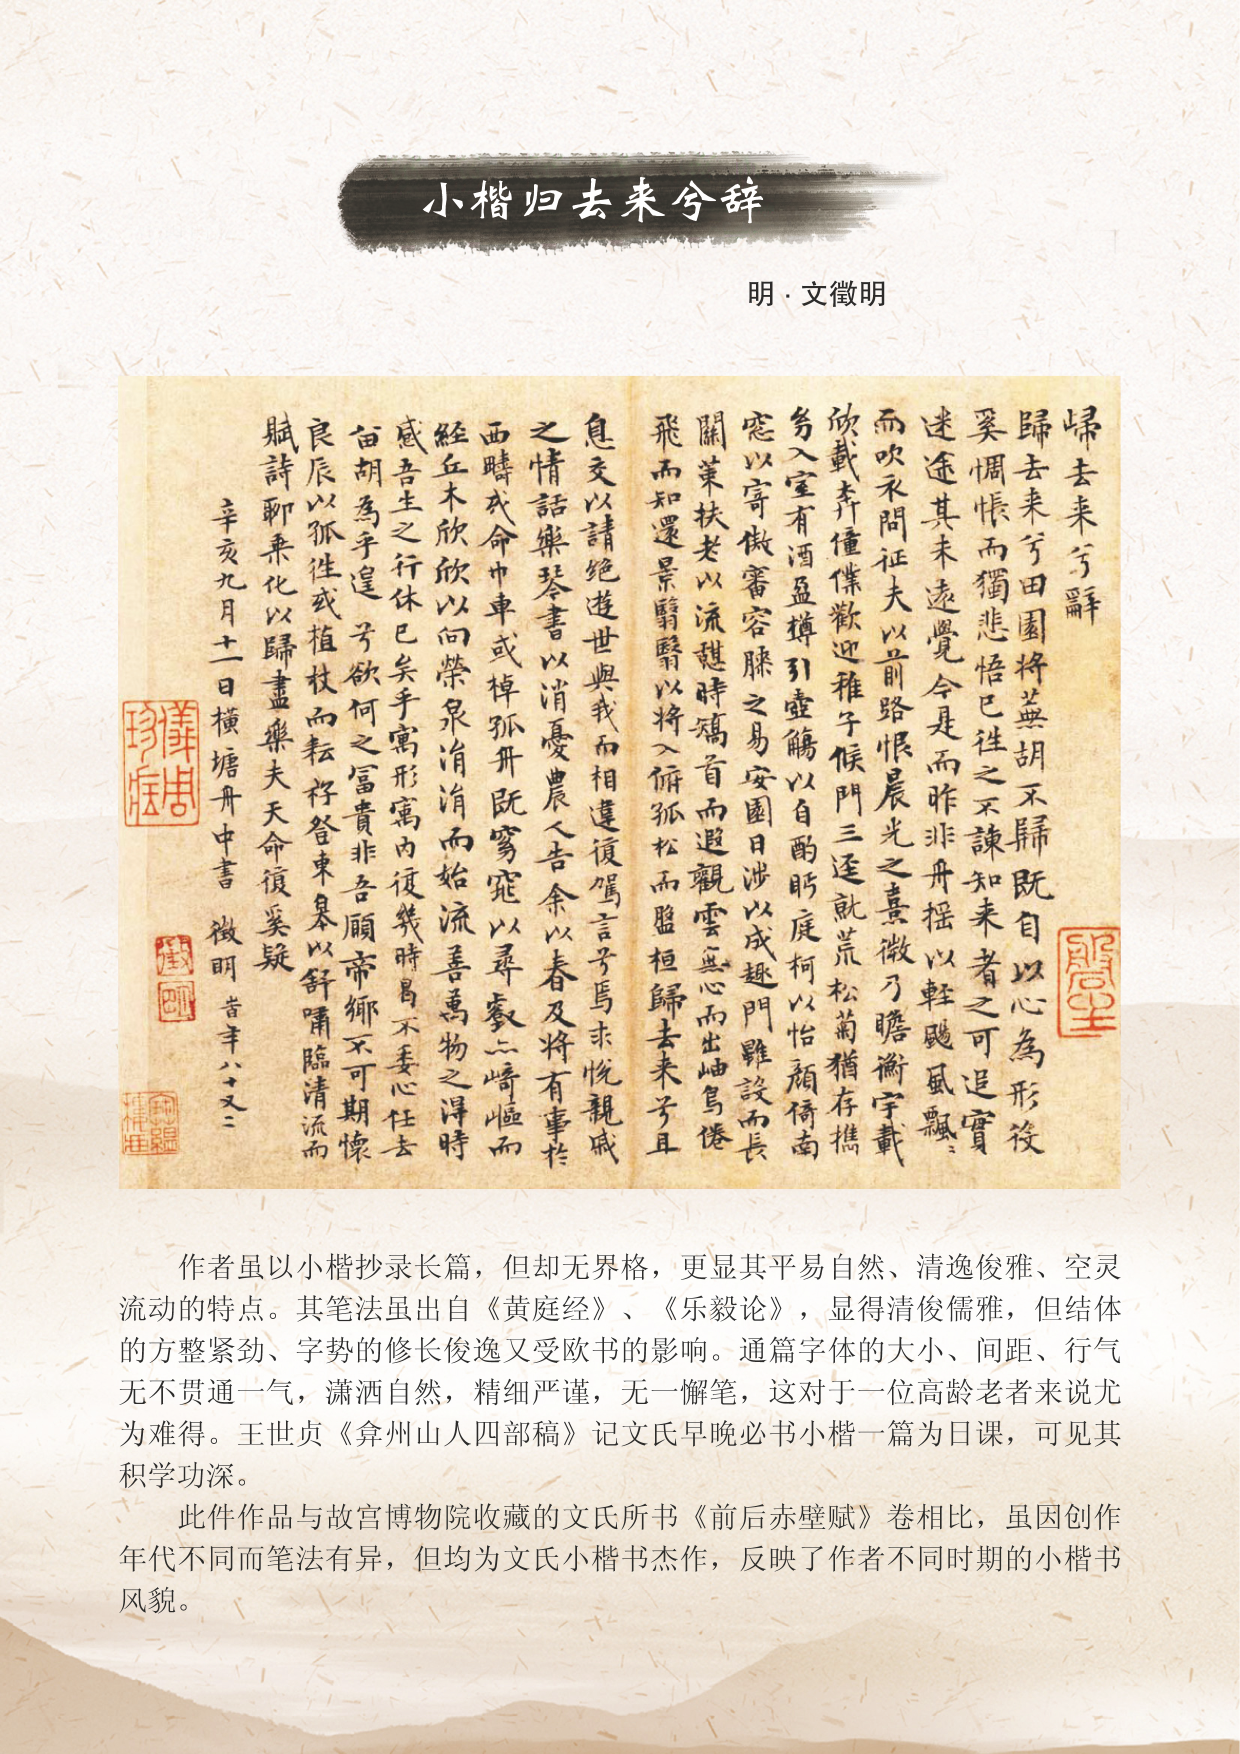 小楷归去来兮辞
明·文徵明
歸去来兮辭
歸去来兮田園将蕪胡不歸既自以心為形役
奚惆悵而獨悲悟已徃之不諫知来者之可追實
迷途其未遠覺今是而昨非舟摇以輕颺風飄〻
而吹衣問征夫以前路恨晨光之熹微乃瞻衡宇載
欣載奔僮僕歡迎稚子候門三逕就荒松菊猶存携
幼入室有酒盈樽引壺觴以自酌眄庭柯以怡顔倚南
窓以寄傲審容膝之易安園日涉以成趣門雖設而長
關策扶老以流憩時矯首而遐觀雲無心而出岫鳥倦
飛而知還景翳翳以将入俯孤松而盤桓歸去来兮且
息交以請絶遊世與我而相違復駕言兮焉求悦親戚
之情話樂琴書以消憂農人告余以春及将有事於
西疇或命巾車或棹孤舟既窈窕以尋壑亦崎嶇而
經丘木欣欣以向榮泉涓涓而始流善萬物之得時
感吾生之行休已矣乎寓形寓内復幾時曷不委心任去
留胡為乎遑兮欲何之冨貴非吾願帝鄉不可期懷
良辰以孤徃或植杖而耘耔登東皋以舒嘯臨清流而
賦詩聊乘化以歸盡樂夫天命復奚疑
辛亥九月十一日橫塘舟中書 徵明 旹年八十又二
徵
明
作者虽以小楷抄录长篇，但却无界格，更显其平易自然、清逸俊雅、空灵
流动的特点。其笔法虽出自《黄庭经》、《乐毅论》，显得清俊儒雅，但结体
的方整紧劲、字势的修长俊逸又受欧书的影响。通篇字体的大小、间距、行气
无不贯通一气，潇洒自然，精细严谨，无一懈笔，这对于一位高龄老者来说尤
为难得。王世贞《弇州山人四部稿》记文氏早晚必书小楷一篇为日课，可见其
积学功深。
此件作品与故宫博物院收藏的文氏所书《前后赤壁赋》卷相比，虽因创作
年代不同而笔法有异，但均为文氏小楷书杰作，反映了作者不同时期的小楷书
风貌。